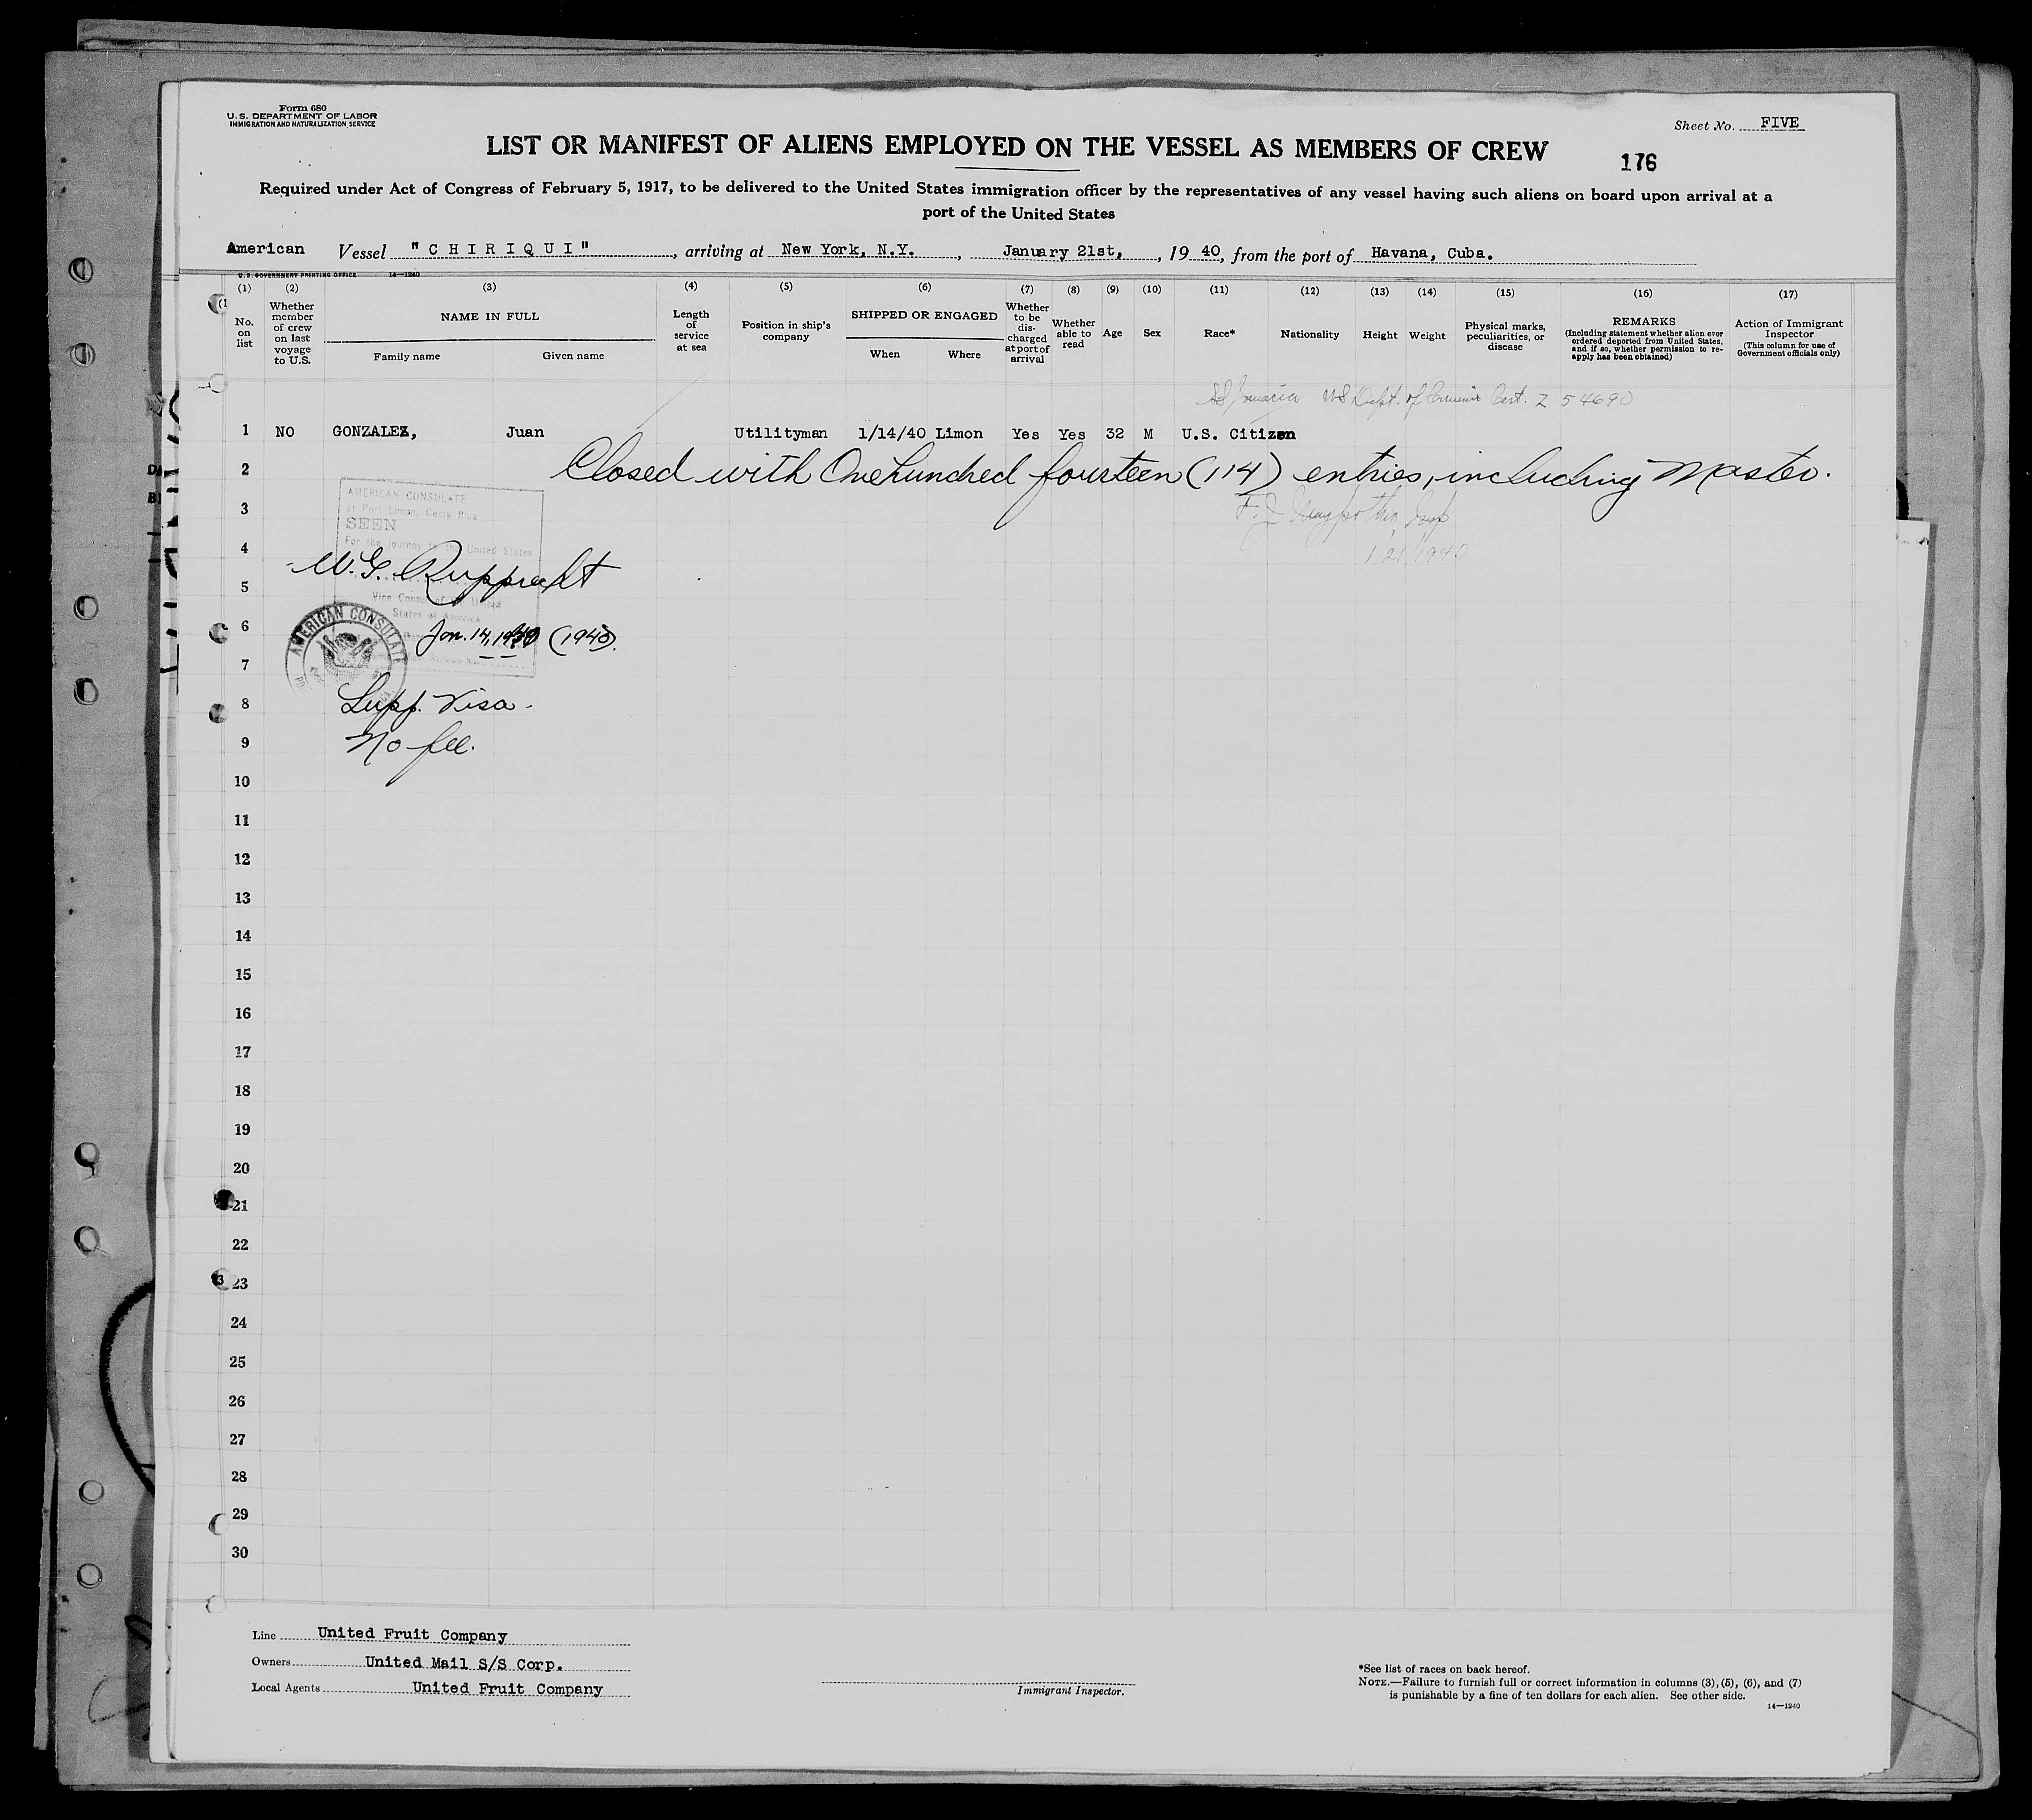 Form 680
U. S. DEPARTMENT OF LABOR
IMMIGRATION AND NATURALIZATION SERVICE
Sheet No. FIVE
LIST OR MANIFEST OF ALIENS EMPLOYED ON THE VESSEL AS MEMBERS OF CREW
176
Required under Act of Congress of February 5, 1917, to be delivered to the United States immigration officer by the representatives of any vessel having such aliens on board upon arrival at a
port of the United States
American Vessel "CHIRIQUI", arriving at New York, N.Y., January 21st, , 19 40, from the port of Havana, Cuba.
U. S. GOVERNMENT PRINTING OFFICE 14—1240
(1) (2) (3) (4) (5) (6) (7) (8) (9) (10) (11) (12) (13) (14) (15) (16) (17)
No. on list
Whether member of crew on last voyage to U.S.
NAME IN FULL
Family name Given name
Length of service at sea
Position in ship's company
SHIPPED OR ENGAGED
When Where
Whether to be discharged at port of arrival
Whether able to read
Age
Sex
Race*
Nationality
Height
Weight
Physical marks, peculiarities, or disease
REMARKS
(Including statement whether alien ever ordered deported from United States, and if so, whether permission to re-apply has been obtained)
Action of Immigrant Inspector
(This column for use of Government officials only)
US Dept. of Cert. Z 54690
1 NO GONZALEZ, Juan Utilityman 1/14/40 Limon Yes Yes 32 M U.S. Citizen
2 Closed with One hundred fourteen (114) entries, including Master.
AMERICAN CONSULATE
at Port Limon, Costa Rica
3
SEEN
For the journey to the United States
4 1/21/1940
W. G. Rupprecht
5
Vice Consul of the United
States of America
6 Jan. 14, 1940 (1940).
AMERICAN CONSULATE
7
8 Supp. Visa.
9 No fee.
10
11
12
13
14
15
16
17
18
19
20
21
22
23
24
25
26
27
28
29
30
Line United Fruit Company
Owners United Mail S/S Corp.
Local Agents United Fruit Company
Immigrant Inspector.
*See list of races on back hereof.
NOTE.—Failure to furnish full or correct information in columns (3), (5), (6), and (7)
is punishable by a fine of ten dollars for each alien. See other side.
14—1240